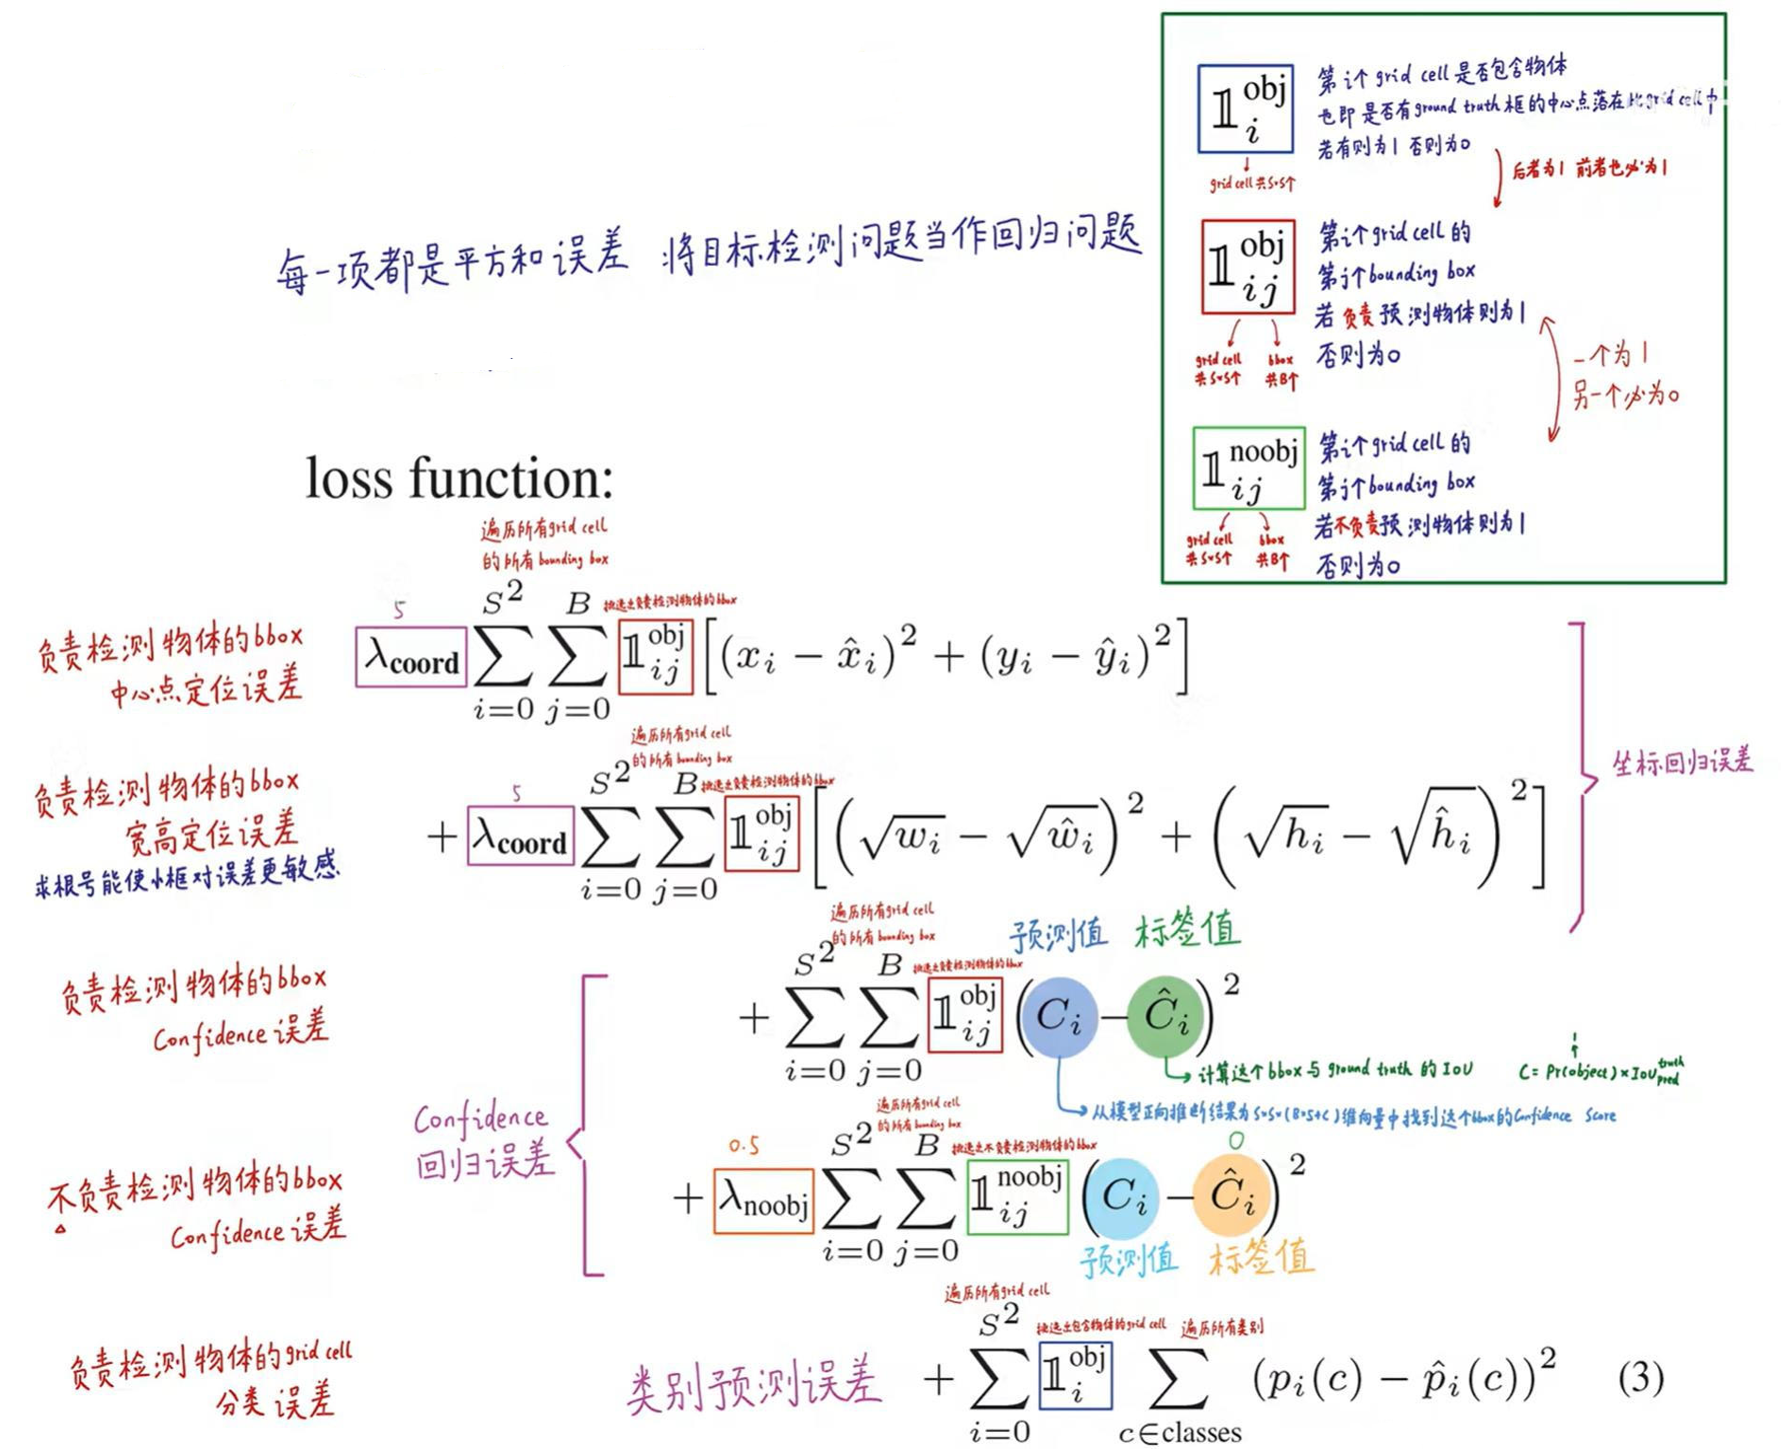 𝟙 obj i
第i个grid cell是否包含物体
也即是否有ground truth框的中心点落在此grid cell中
若有则为1 否则为0
grid cell共S*S个
后者为1 前者也必为1
每一项都是平方和误差 将目标检测问题当作回归问题
𝟙 obj ij
第i个grid cell的
第j个bounding box
若负责预测物体则为1
否则为0
grid cell 共S*S个
bbox 共B个
一个为1
另一个必为0
𝟙 noobj ij
第i个grid cell的
第j个bounding box
若不负责预测物体则为1
否则为0
grid cell 共S*S个
bbox 共B个
loss function:
遍历所有grid cell
的所有bounding box
挑选出负责检测物体的bbox
5
负责检测物体的bbox
中心点定位误差
λcoord ∑_{i=0}^{S^2} ∑_{j=0}^{B} 𝟙_{ij}^{obj} [(x_i − x̂_i)^2 + (y_i − ŷ_i)^2]
坐标回归误差
遍历所有grid cell
的所有bounding box
挑选出负责检测物体的bbox
5
负责检测物体的bbox
宽高定位误差
求根号能使小框对误差更敏感
+ λcoord ∑_{i=0}^{S^2} ∑_{j=0}^{B} 𝟙_{ij}^{obj} [(√w_i − √ŵ_i)^2 + (√h_i − √ĥ_i)^2]
遍历所有grid cell
的所有bounding box
挑选出负责检测物体的bbox
预测值 标签值
负责检测物体的bbox
Confidence 误差
+ ∑_{i=0}^{S^2} ∑_{j=0}^{B} 𝟙_{ij}^{obj} (C_i − Ĉ_i)^2
计算这个bbox与ground truth的IoU
C = Pr(object) × IoU truth pred
1
从模型正向推断结果为S*S*(B*5+C)维向量中找到这个bbox的Confidence Score
Confidence
回归误差
遍历所有grid cell
的所有bounding box
挑选出不负责检测物体的bbox
0.5
0
不负责检测物体的bbox
Confidence 误差
+ λnoobj ∑_{i=0}^{S^2} ∑_{j=0}^{B} 𝟙_{ij}^{noobj} (C_i − Ĉ_i)^2
预测值 标签值
遍历所有grid cell
挑选出包含物体的grid cell
遍历所有类别
负责检测物体的grid cell
分类误差
类别预测误差
+ ∑_{i=0}^{S^2} 𝟙_i^{obj} ∑_{c∈classes} (p_i(c) − p̂_i(c))^2 (3)